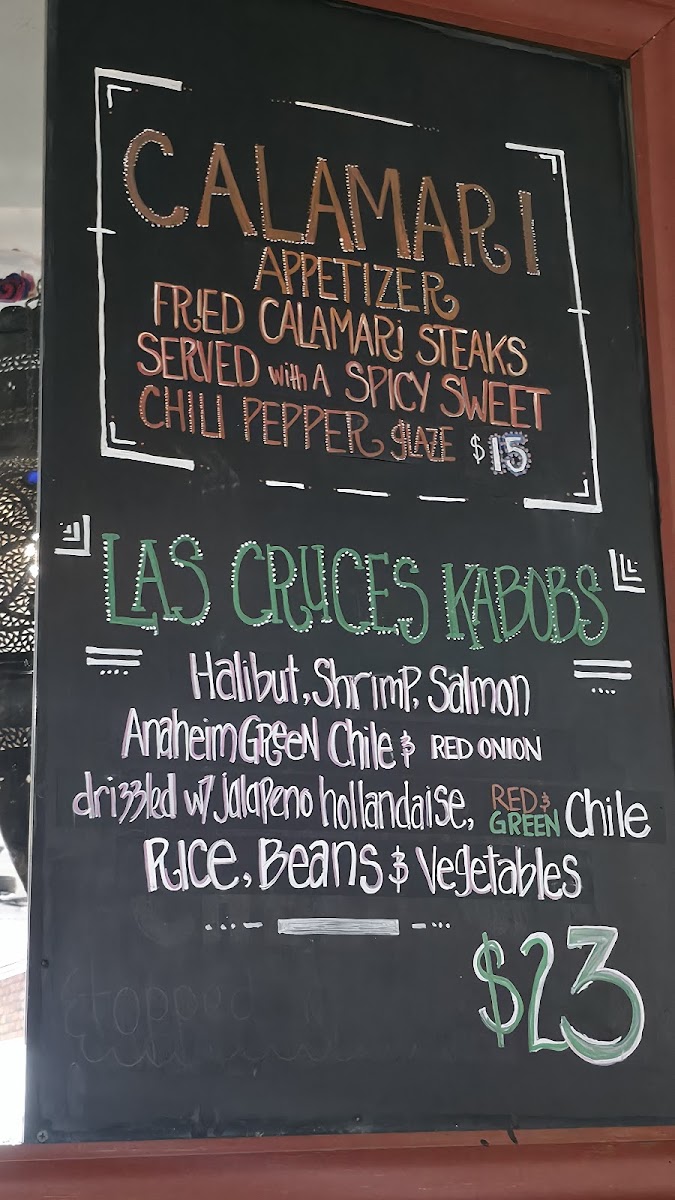 CALAMARI
APPETIZER
FRIED CALAMARi STEAKS
SERVED with A SPICY SWEET
CHILI PEPPER glaze $15
LAS CRUCES KABOBS
Halibut, Shrimp, Salmon
Anaheim GReeN Chile & RED ONION
drizzled w/ jalapeno hollandaise, RED & GREEN Chile
Rice, Beans & Vegetables
$23
topped